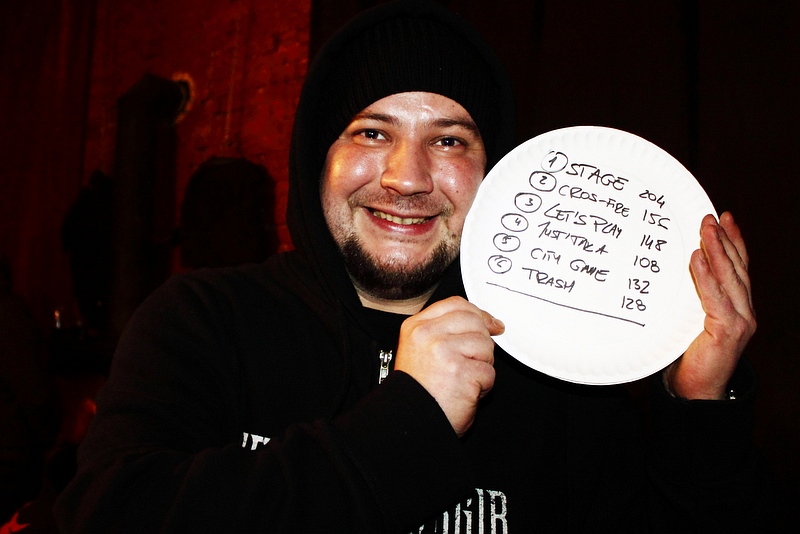 1 STAGE 204
2 CROS-FIRE 155
3 LET'S PLAY 148
4 108
5 CITY GAME 132
6 TRASH 128